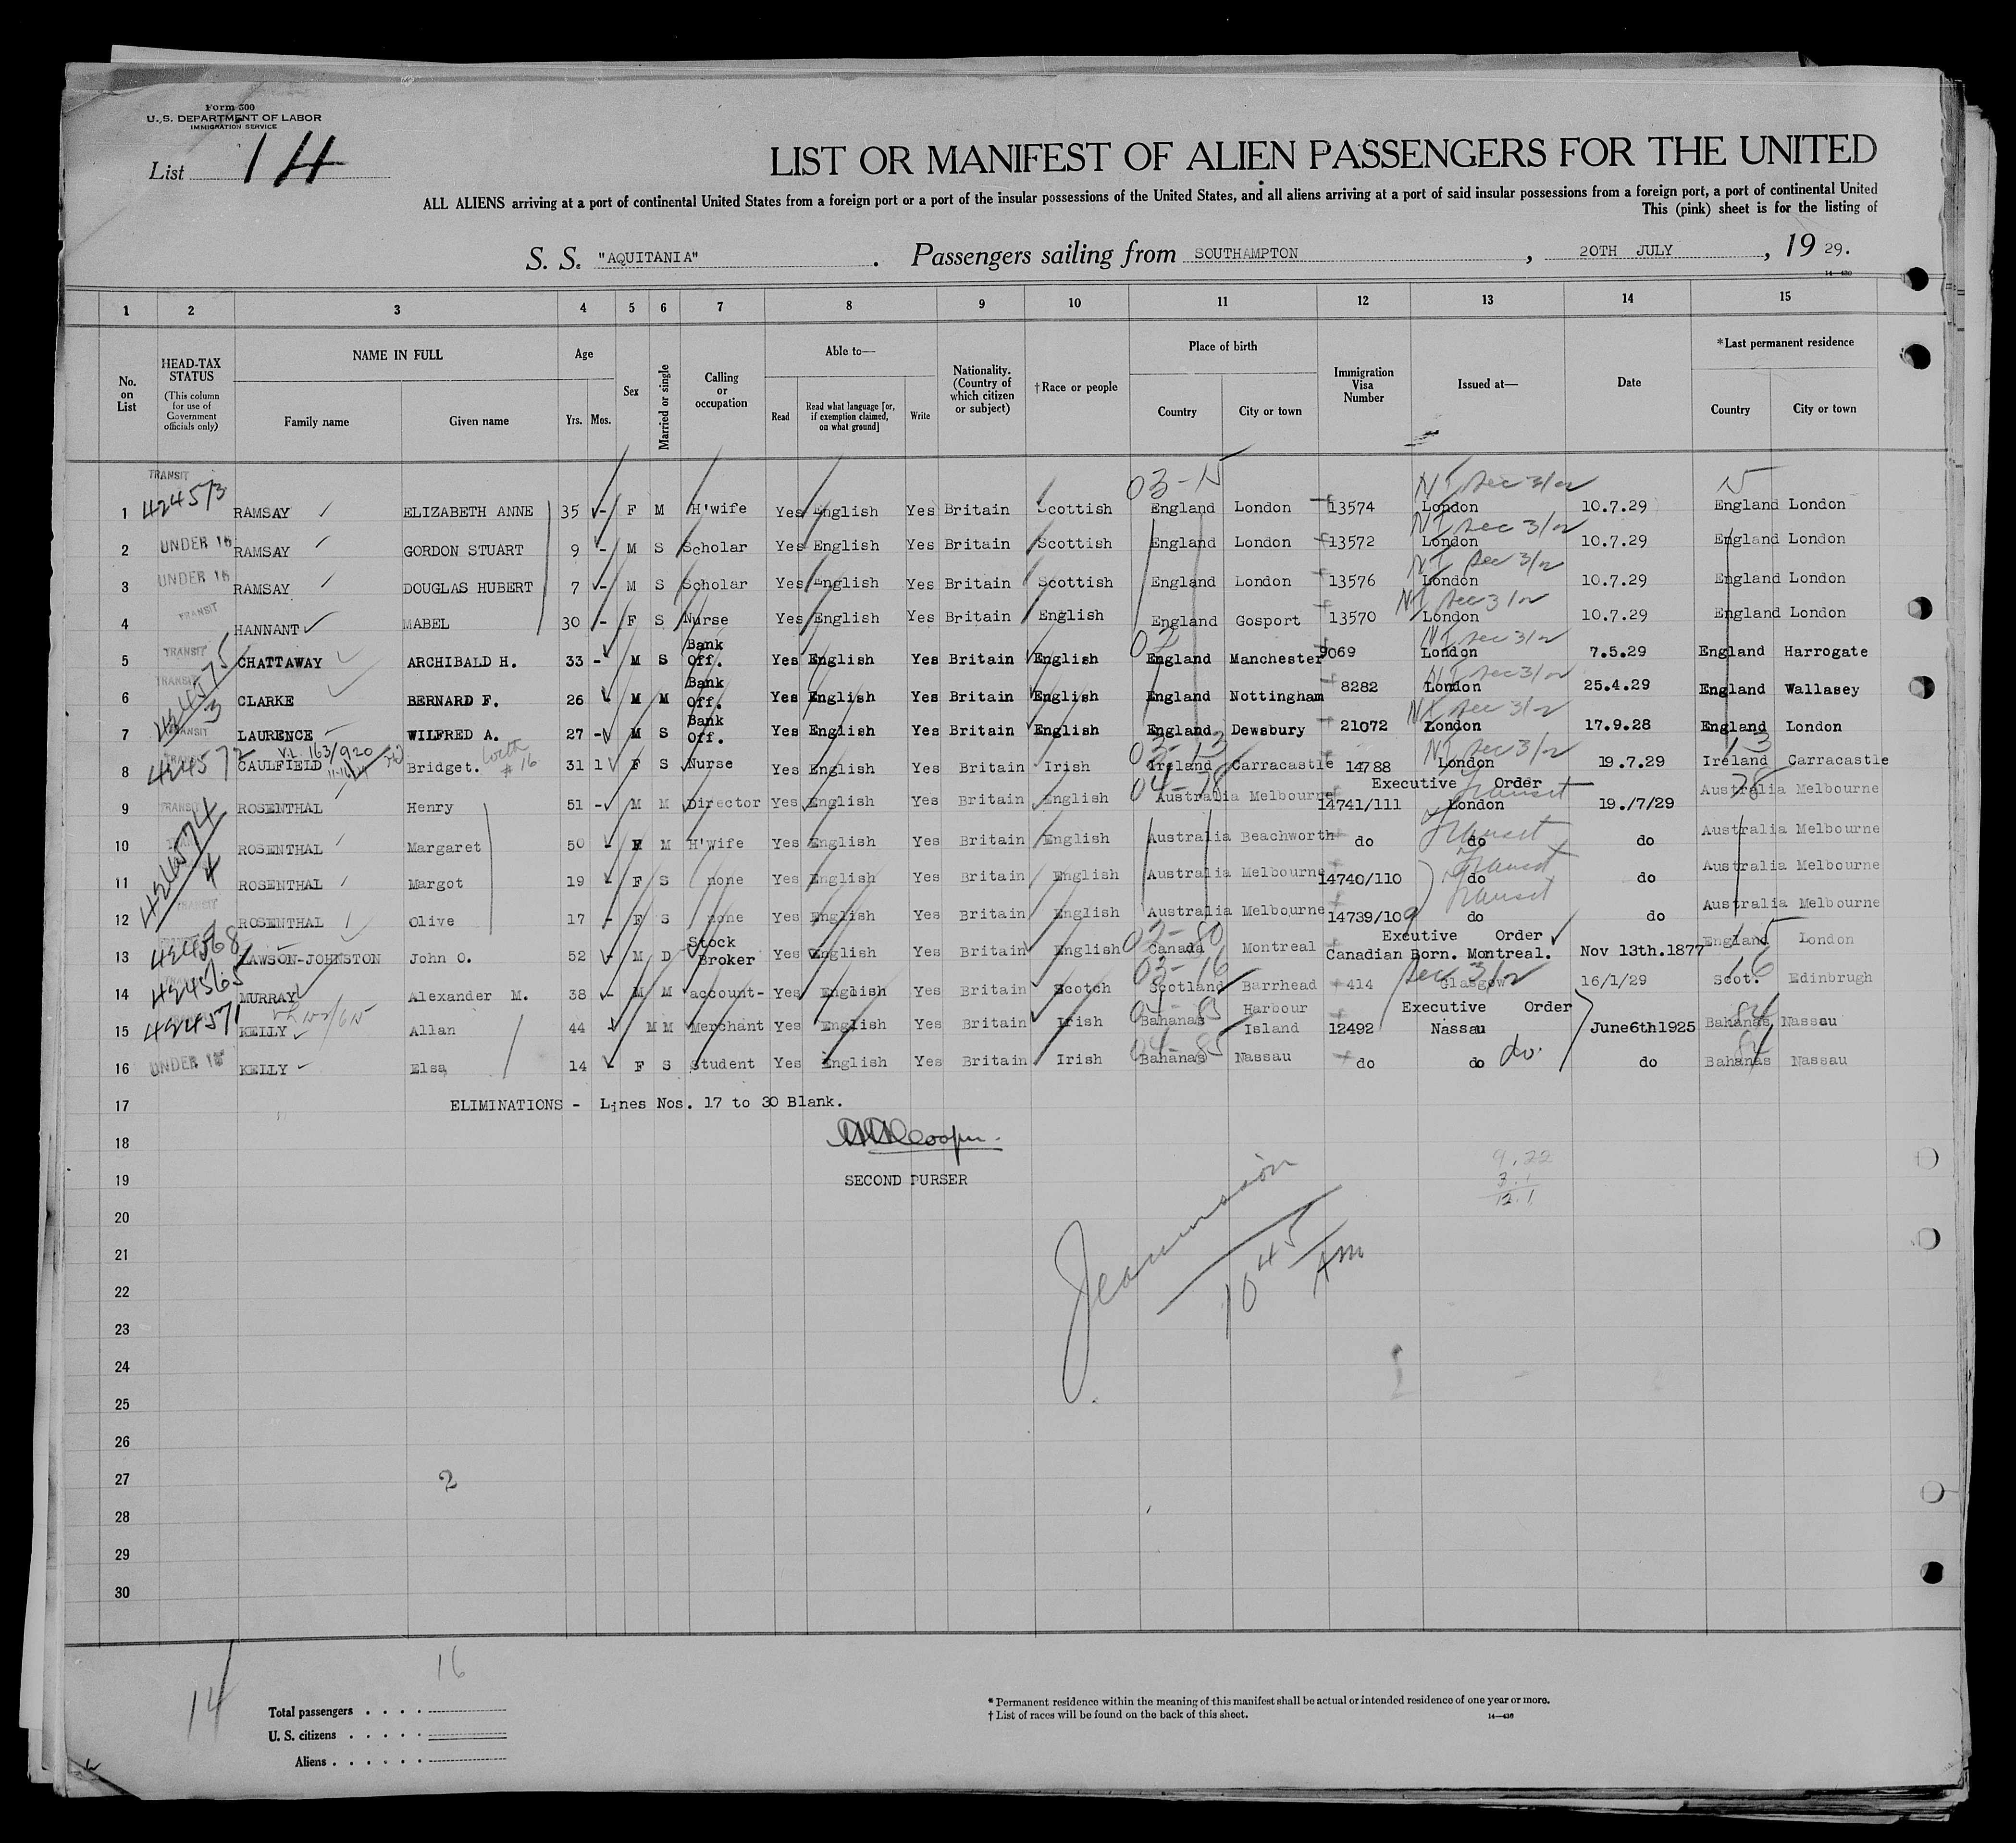 Form 500
U. S. DEPARTMENT OF LABOR
IMMIGRATION SERVICE
List 14
LIST OR MANIFEST OF ALIEN PASSENGERS FOR THE UNITED
ALL ALIENS arriving at a port of continental United States from a foreign port or a port of the insular possessions of the United States, and all aliens arriving at a port of said insular possessions from a foreign port, a port of continental United
This (pink) sheet is for the listing of
S. S. "AQUITANIA" . Passengers sailing from SOUTHAMPTON , 20TH JULY , 19 29.
14—430
1 2 3 4 5 6 7 8 9 10 11 12 13 14 15
No. on List
HEAD-TAX STATUS
(This column for use of Government officials only)
NAME IN FULL
Family name Given name
Age
Yrs. Mos.
Sex
Married or single
Calling or occupation
Able to—
Read Read what language [or, if exemption claimed, on what ground] Write
Nationality. (Country of which citizen or subject)
†Race or people
Place of birth
Country City or town
Immigration Visa Number
Issued at—
Date
*Last permanent residence
Country City or town
TRANSIT
424573 03-15 NI Sec 3/2 15
1 RAMSAY ELIZABETH ANNE 35 - F M H'wife Yes English Yes Britain Scottish England London 13574 London 10.7.29 England London
NI Sec 3/2
2 UNDER 16 RAMSAY GORDON STUART 9 - M S Scholar Yes English Yes Britain Scottish England London 13572 London 10.7.29 England London
NI Sec 3/2
3 UNDER 16 RAMSAY DOUGLAS HUBERT 7 - M S Scholar Yes English Yes Britain Scottish England London 13576 London 10.7.29 England London
TRANSIT NI Sec 3/2
4 HANNANT MABEL 30 - F S Nurse Yes English Yes Britain English England Gosport 13570 London 10.7.29 England London
TRANSIT NI Sec 3/2
5 CHATTAWAY ARCHIBALD H. 33 - M S Bank Off. Yes English Yes Britain English England Manchester 9069 London 7.5.29 England Harrogate
TRANSIT 424575 NI Sec 3/2
6 CLARKE BERNARD F. 26 M M Bank Off. Yes English Yes Britain English England Nottingham 8282 London 25.4.29 England Wallasey
3 NI Sec 3/2
7 TRANSIT LAURENCE WILFRED A. 27 - M S Bank Off. Yes English Yes Britain English England Dewsbury 21072 London 17.9.28 England London
424572 V.L. 163/920 with #16 03-13 NI Sec 3/2 13
8 CAULFIELD Bridget. 31 1 F S Nurse Yes English Yes Britain Irish Ireland Carracastle 14788 London 19.7.29 Ireland Carracastle
04-78 Executive Order Transit 78
9 TRANSIT ROSENTHAL Henry 51 - M M Director Yes English Yes Britain English Australia Melbourne 14741/111 London 19./7/29 Australia Melbourne
Transit
10 ROSENTHAL Margaret 50 F M H'wife Yes English Yes Britain English Australia Beachworth do do do Australia Melbourne
424574 4 Transit
11 ROSENTHAL Margot 19 F S none Yes English Yes Britain English Australia Melbourne 14740/110 do do Australia Melbourne
Transit
12 TRANSIT ROSENTHAL Olive 17 - F S none Yes English Yes Britain English Australia Melbourne 14739/109 do do Australia Melbourne
424568 03-80 Executive Order 15
13 LAWSON-JOHNSTON John O. 52 - M D Stock Broker Yes English Yes Britain English Canada Montreal Canadian Born. Montreal. Nov 13th.1877 England London
424565 03-16 Sec 3/2 16
14 MURRAY Alexander M. 38 - M M account- Yes English Yes Britain Scotch Scotland Barrhead 414 Glasgow 16/1/29 Scot. Edinbrugh
424571 04-85 Executive Order 84
15 KEILY Allan 44 M M Merchant Yes English Yes Britain Irish Bahanas Harbour Island 12492 Nassau June6th1925 Bahanas Nassau
04-85 84
16 UNDER 16 KEILY Elsa 14 F S Student Yes English Yes Britain Irish Bahanas Nassau do do do. do Bahanas Nassau
17 ELIMINATIONS - Lines Nos. 17 to 30 Blank.
18 Cooper.
19 SECOND PURSER
9.22
3.1
12.1
20
21
10 45 AM
22
23
24
25
26
27 2
28
29
30
14
16
Total passengers . . . .
U. S. citizens . . . . .
Aliens . . . . . .
* Permanent residence within the meaning of this manifest shall be actual or intended residence of one year or more.
† List of races will be found on the back of this sheet.
14—430